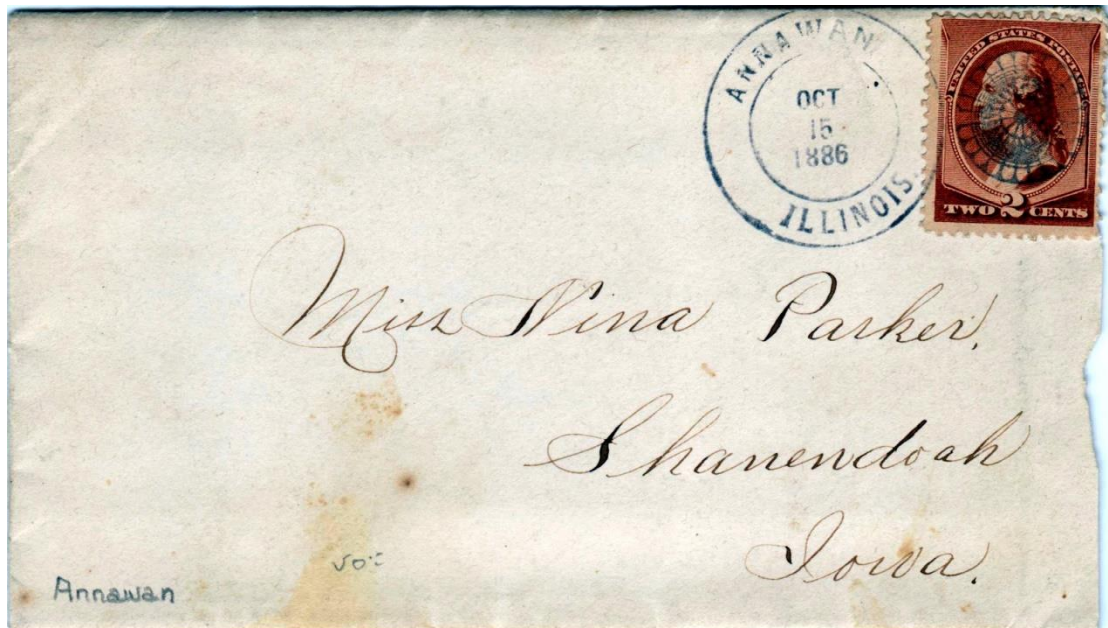 ANNAWAN
OCT
15
1886
ILLINOIS.
UNITED STATES POSTAGE
TWO 2 CENTS
Miss Nina Parker,
Shanendoah
Iowa.
Annawan